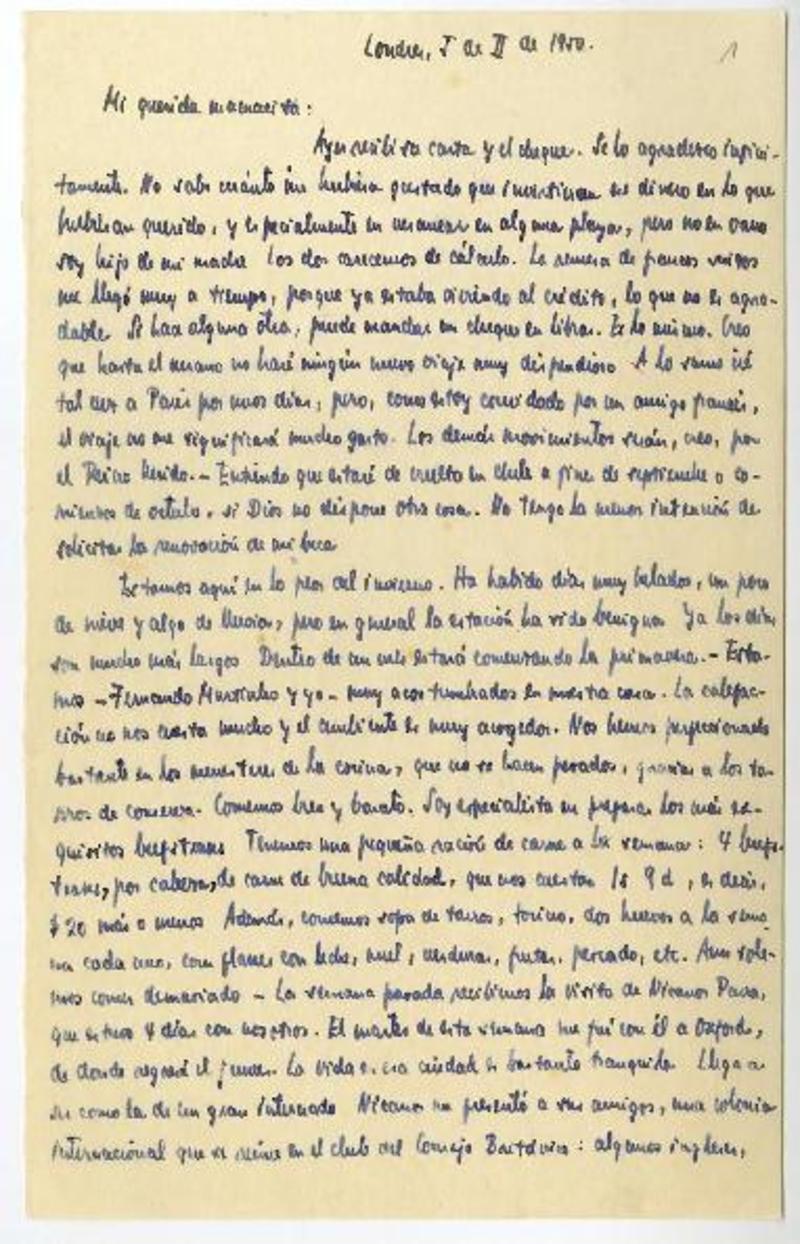 Londres, 5 de II de 1950.
1
Mi querida mamacita:
Ayer recibí su carta y el cheque. Se lo agradezco infini-
tamente. No sabe cuánto me hubiera gustado que invirtieran ese dinero en lo que
hubieran querido, y especialmente en veranear en alguna playa, pero no en vano
soy hijo de mi madre. Los dos carecemos de cálculo. La remesa de francos suizos
me llegó muy a tiempo, porque ya estaba viviendo al crédito, lo que no es agra-
dable. Si hace alguna otra, puede mandar un cheque en libras. Es lo mismo. Creo
que hasta el verano no haré ningún nuevo viaje muy dispendioso. A lo sumo iré
tal vez a París por unos días, pero, como estoy convidado por un amigo francés,
el viaje no me significará mucho gasto. Los demás movimientos serán, creo, por
el Reino Unido.- Entiendo que estaré de vuelta en Chile a fines de septiembre o co-
mienzos de octubre, si Dios no dispone otra cosa. No tengo la menor intención de
solicitar la renovación de mi beca.
Estamos aquí en lo peor del invierno. Ha habido días muy helados, un poco
de nieve y algo de lluvia, pero en general la estación ha sido benigna. Ya los días
son mucho más largos. Dentro de un mes estará comenzando la primavera.- Esta-
mos - Fernando y yo - muy acostumbrados en nuestra casa. La calefac-
ción no nos cuesta mucho y el ambiente es muy acogedor. Nos hemos perfeccionado
bastante en los menesteres de la cocina, que no se hacen pesados, gracias a los ta-
rros de conserva. Comemos bien y barato. Soy especialista en preparar los más ex-
quisitos beefsteaks. Tenemos una pequeña ración de carne a la semana: 4 beefs-
teaks, por cabeza, de carne de buena calidad, que nos cuestan 1s 9d, es decir,
$ 20 más o menos. Además, comemos sopa de tarros, tocino, dos huevos a la sema-
na cada uno, corn flakes con leche, miel, verduras, frutas, pescado, etc. Aun sole-
mos comer demasiado - La semana pasada recibimos la visita de Nicanor Parra,
que estuvo 4 días con nosotros. El martes de esta semana me fuí con él a Oxford,
de donde regresé el jueves. La vida en esa ciudad es bastante tranquila. Llega a
ser como la de un gran internado. Nicanor me presentó a sus amigos, una colonia
internacional que se reúne en el club del Consejo Británico: algunos ingleses,